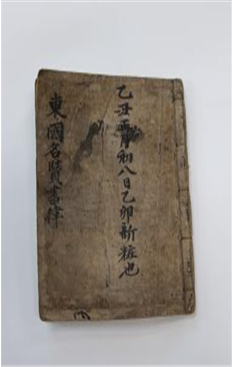 乙丑正月初八日乙卯新粧也
東國名賢書律